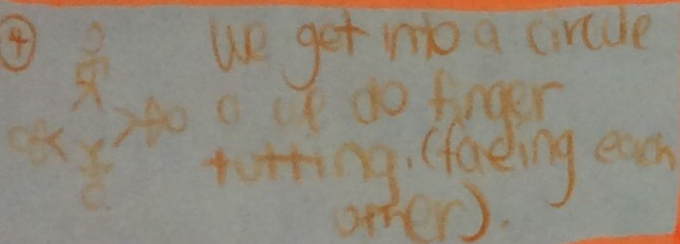 4 We get into a circle
& we do finger
tutting. (facing each
other).